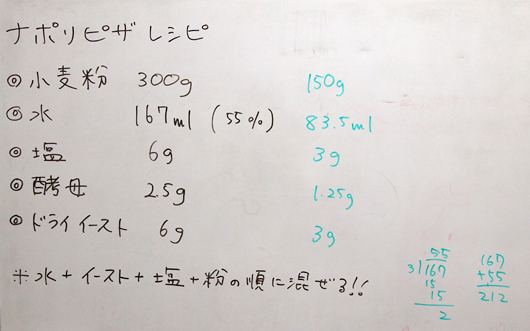 ナポリピザ レシピ
◎ 小麦粉 300g 150g
◎ 水 167ml (55%) 83.5ml
◎ 塩 6g 3g
◎ 酵母 2.5g 1.25g
◎ ドライイースト 6g 3g
※ 水 + イースト + 塩 + 粉の順に混ぜる!!
55
3)167
15
15
2
167
+55
212